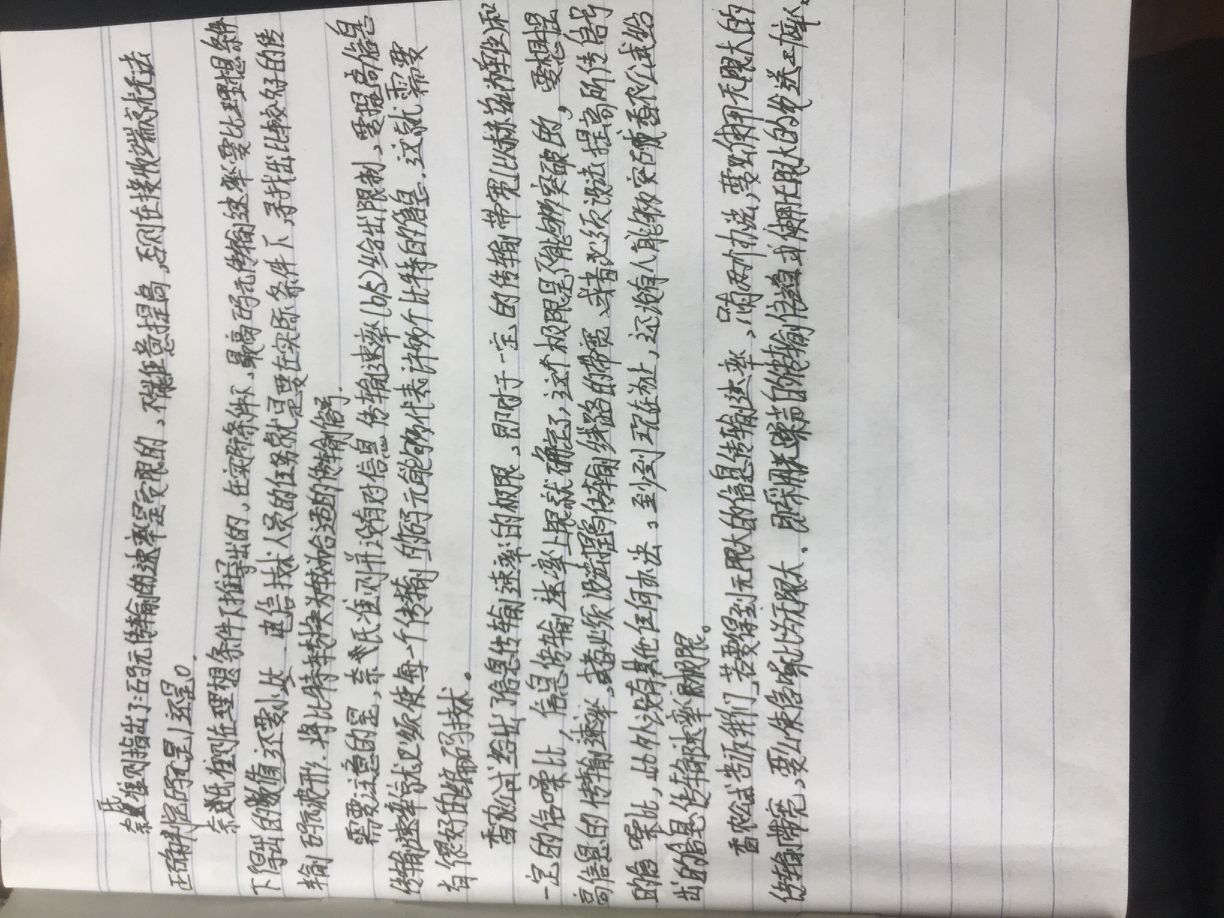 奈氏准则指出了:码元传输的速率是受限的,不能任意提高,否则在接收端就无法
正确判定码元是1还是0.
奈氏准则在理想条件下推导出的,在实际条件下,最高码元传输速率要比理想条件
下得出的数值还要小些.电信技术人员的任务就是要在实际条件下,寻找出比较好的传
输码元波形,将比特转换为较为合适的传输信号.
需要注意的是,奈氏准则并没有对信息传输速率(b/s)给出限制,要提高信息
传输速率就必须使每一个传输的码元能够代表许多个比特的信息.这就需要
有很好的编码技术。
香农公式给出了信息传输速率的极限,即对于一定的传输带宽(以赫兹为单位)和
一定的信噪比,信息传输速率上限就确定了,这个极限是不能够突破的,要想提
高信息的传输速率,或者必须设法提高传输线路的带宽,或者必须设法提高所传信号
的信噪比,此外没有其他任何办法。至少到现在为止,还没有人能够突破香农公式给
出的信息传输速率的极限。
香农公式告诉我们,若要得到无限大的信息传输速率,只有两个办法,要么使用无限大的
传输带宽,要么使信噪比为无限大,即采用无噪声的传输信道或使用无限大的发送功率.